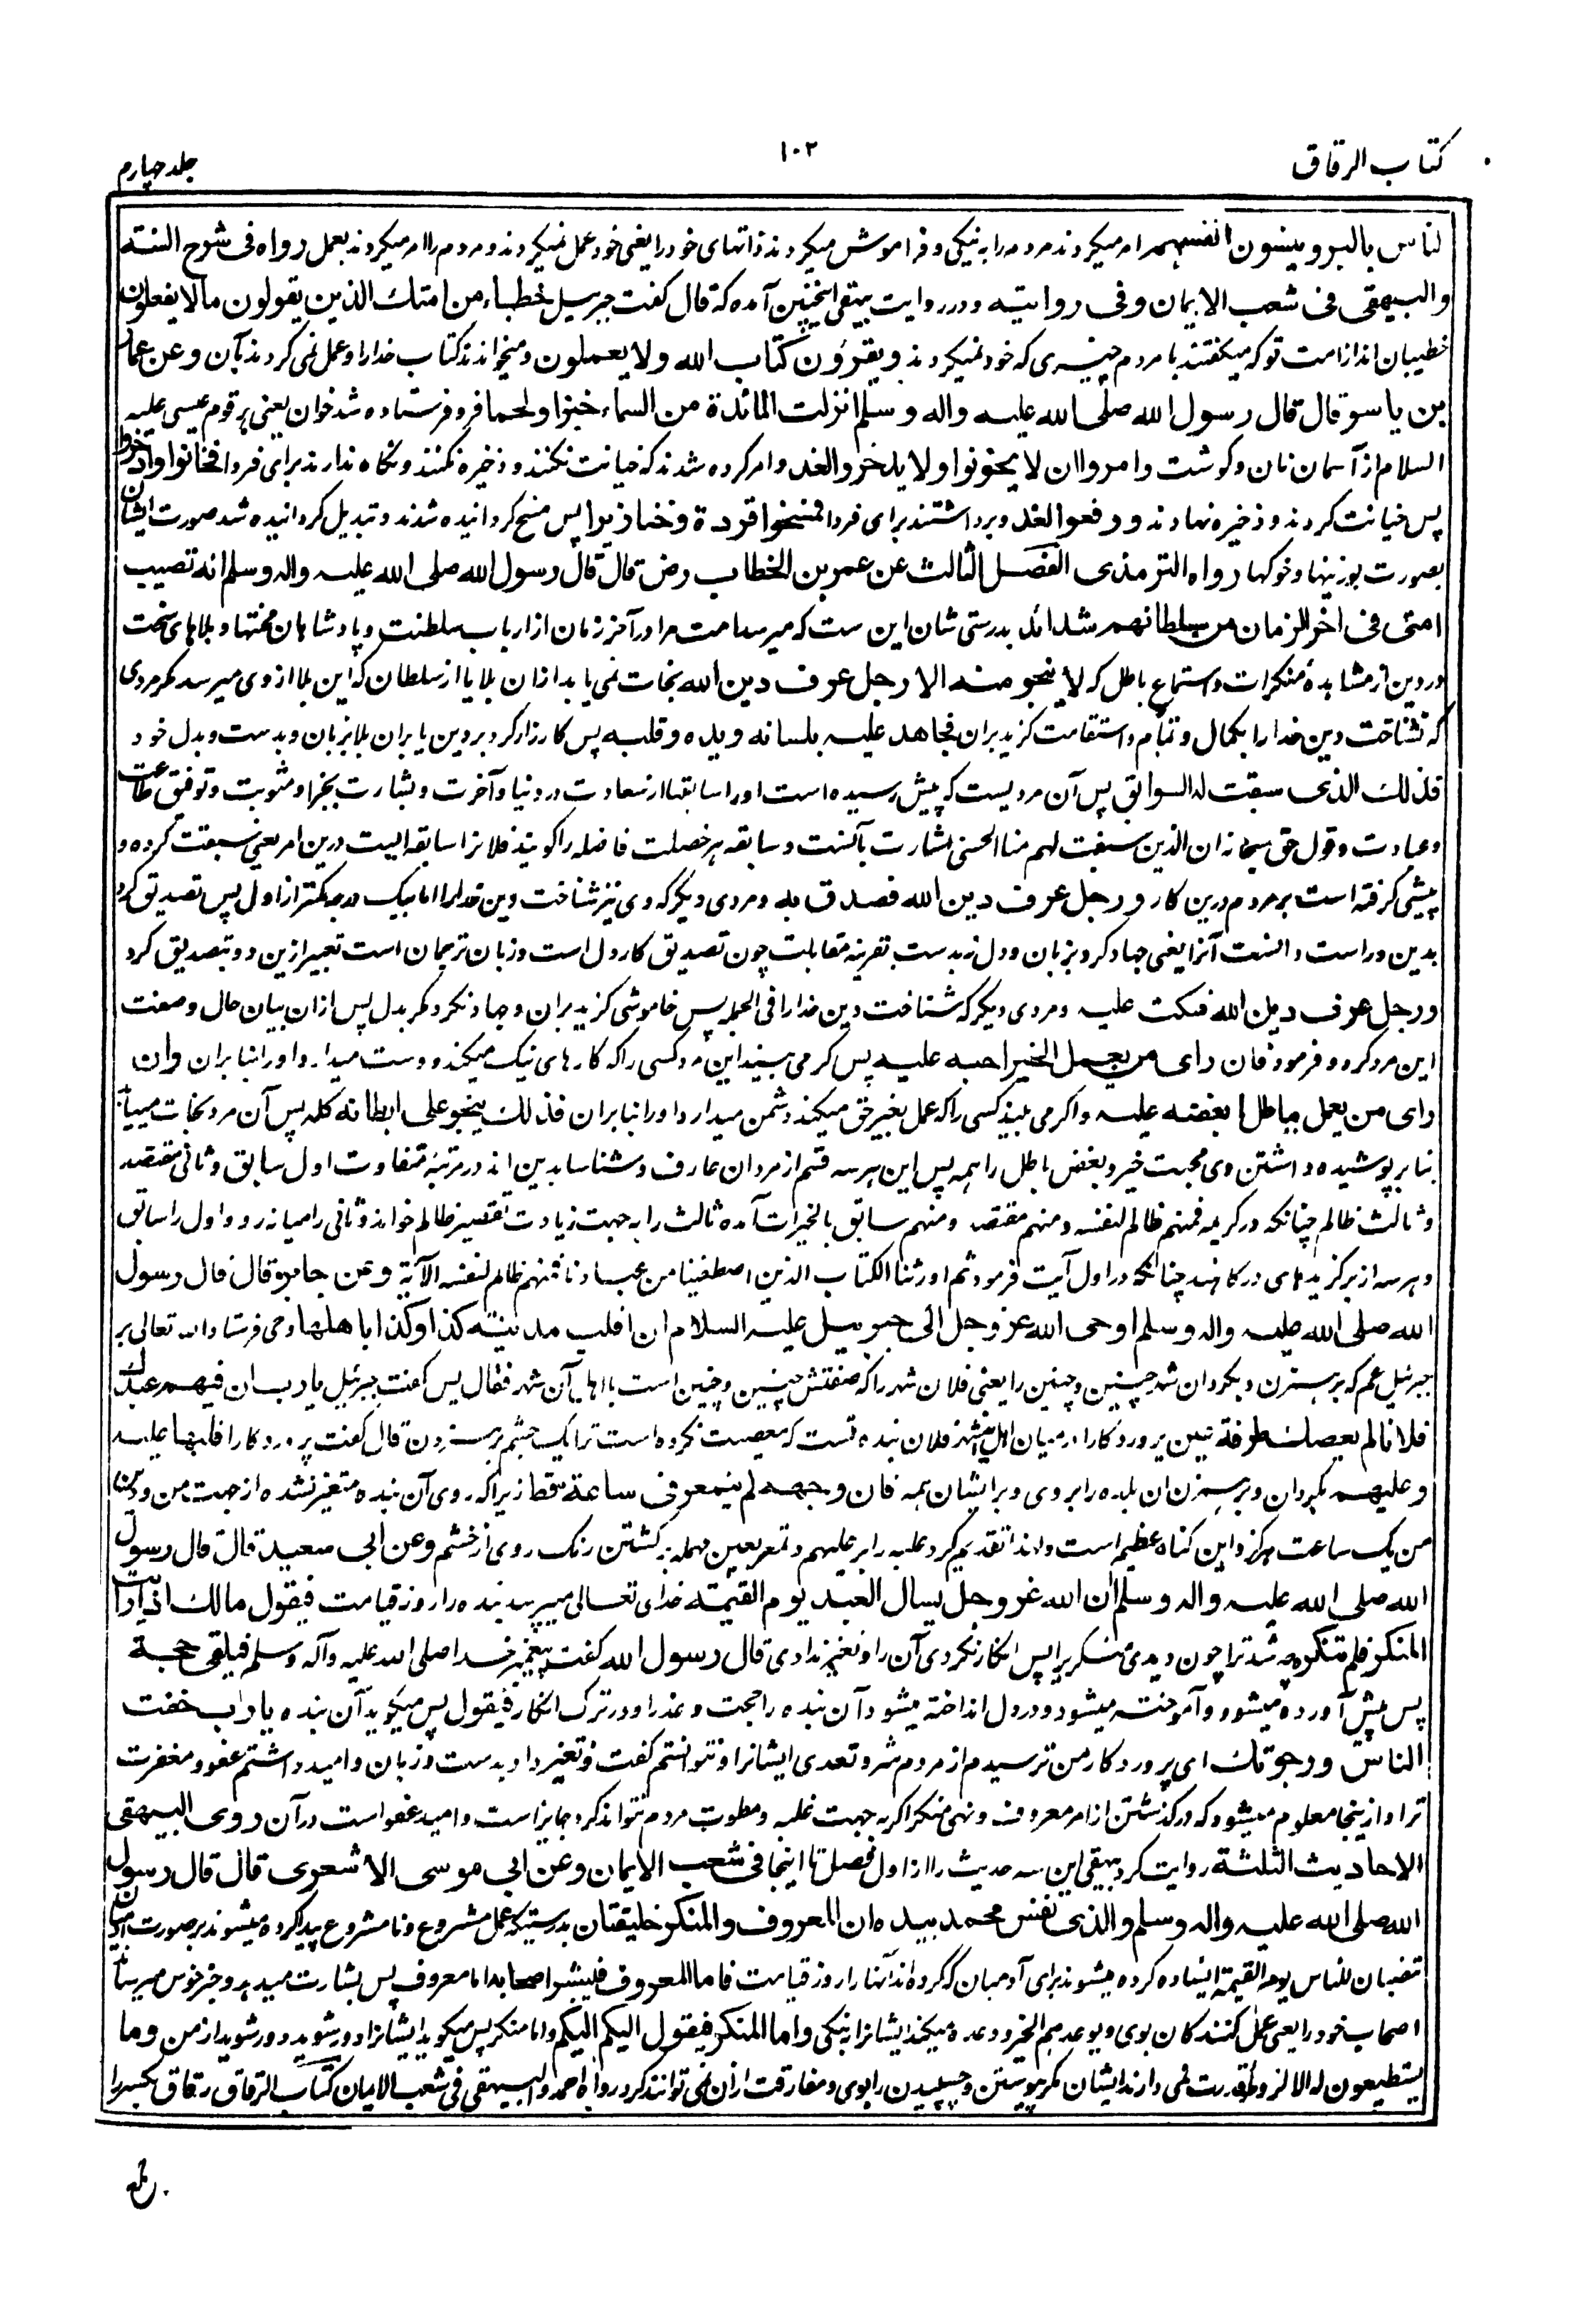 کتاب الرقاق
۱۰۲
جلد چهارم
لناس بالبر وینسون انفسهم امر میکردند مردم را به نیکی و فراموش میکردند ذاتهای خود را یعنی خود عمل نمیکردند و مردم را امر میکردند بعمل رواه فی شرح السنة
والبیهقی فی شعب الایمان وفی روایته و در روایت بیهقی اینچنین آمده که قال گفت جبرئیل خطباء من امتک الذین یقولون مالا یفعلون
خطیبان اند از امت تو که میگفتند با مردم چیزی که خود نمیکردند ویقرؤن کتاب الله ولا یعملون و میخواندند کتاب خدا را و عمل نمی کردند بآن وعن عمار
بن یاسر قال قال رسول الله صلی الله علیه واله وسلم انزلت المائدة من السماء خبزا ولحما فرو فرستاده شد خوان یعنی بر قوم عیسی علیه
السلام از آسمان نان و گوشت وامروا ان لا یخونوا ولا یدخروا لغد و امر کرده شدند که خیانت نکنند و ذخیره نکنند و نگاه ندارند برای فردا فخانوا وادخروا
پس خیانت کردند و ذخیره نهادند ورفعوا لغد و برداشتند برای فردا فمسخوا قردة وخنازیر پس مسخ گردانیده شدند و تبدیل گردانیده شد صورت ایشان
بصورت بوزینها و خوکها رواه الترمذی الفصل الثالث عن عمر بن الخطاب رض قال قال رسول الله صلی الله علیه واله وسلم انه تصیب
امتی فی اخر الزمان من سلطانهم شدائد بدرستی شان این ست که میرسد امت مرا در آخر زمان از ارباب سلطنت و پادشاهان محنتها و بلاهای سخت
در دین از مشاهدۀ منکرات و استماع باطل که لا ینجو منه الا رجل عرف دین الله نجات نمی یابد ازان بلایا از سلطان که این بلا از وی میرسد مگر مردی
که شناخت دین خدا را بکمال و تمام و استقامت گزید بران فجاهد علیه بلسانه ویده وقلبه پس کارزار کرد بر دین یا بران بلا بزبان و بدست و بدل خود
فذلک الذی سبقت له السوابق پس آن مردیست که پیش رسیده است او را سابقها از سعادت در دنیا و آخرت و بشارت بجزا و مثوبت و توفیق طاعت
و عبادت و قول حق سبحانه ان الذین سبقت لهم منا الحسنی بشارت بآنست و سابقه هر خصلت فاضله را گویند فلانرا سابقه ایست درین امر یعنی سبقت کرده و
پیشی گرفته است بر مردم درین کار ورجل عرف دین الله فصدق به و مردی دیگر که وی نیز شناخت دین خدا را اما بیک درجه کمتر از اول پس تصدیق کرد
بدین و راست دانست آنرا یعنی جهاد کرد بزبان و دل نه بدست بقرینه مقابلت چون تصدیق کار دل است و زبان ترجمان است تعبیر ازین دو بتصدیق کرد
ورجل عرف دین الله فسکت علیه و مردی دیگر که شناخت دین خدا را فی الجمله پس خاموشی گزید بران و جهاد نکرد مگر بدل پس ازان بیان حال و صفت
این مرد کرد و فرمود فان رای من یعمل الخیر احبه علیه پس گر می بیند این مرد کسی را که کارهای نیک میکند دوست میدارد او را بنا بران وان
رای من یعمل بباطل ابغضه علیه و اگر می بیند کسی را که عمل بغیر حق میکند دشمن میدارد او را بنا بران فذلک ینجو علی ابطانه کله پس آن مرد نجات مییابد
بنا بر پوشیده داشتن وی محبت خیر و بغض باطل را همه پس این هر سه قسم از مردان عارف و شناسا بدین اند در مرتبۀ متفاوت اول سابق و ثانی مقتصد
و ثالث ظالم چنانکه در کریمه فمنهم ظالم لنفسه ومنهم مقتصد ومنهم سابق بالخیرات آمده ثالث را به جهت زیادت تقصیر ظالم خواند و ثانی را میانه رو و اول را سابق
و هر سه از برگزیدهای درگاهند چنانکه در اول آیت فرمود ثم اورثنا الکتاب الذین اصطفینا من عبادنا فمنهم ظالم لنفسه الآیة وعن جابر قال قال رسول
الله صلی الله علیه واله وسلم اوحی الله عز وجل الی جبرئیل علیه السلام ان اقلب مدینة کذا وکذا باهلها وحی فرستاد الله تعالی بر
جبرئیل عم که بر هم زن و بگردان شهر چنین و چنین را یعنی فلان شهر را که صفتش چنین و چنین است با اهل آن شهر فقال پس گفت جبرئیل یا رب ان فیهم عبدک
فلانا لم یعصک طرفة عین پروردگارا در میان اهل این شهر فلان بنده تست که معصیت نکرده است ترا یک چشم بر هم زدن قال گفت پروردگار اقلبها علیه
وعلیهم بگردان و بر هم زن ان بلده را بر وی و بر ایشان همه فان وجهه لم یتمعر فی ساعة قط زیرا که روی آن بنده متغیر نشده از جهت من و رضای
من یک ساعت هرگز و این گناه عظیم است و لهذا تقدیم کرد علیه را بر علیهم و تمعر بعین مهمله برگشتن رنگ روی از خشم وعن ابی سعید قال قال رسول
الله صلی الله علیه واله وسلم ان الله عز وجل یسال العبد یوم القیمة خدای تعالی میپرسد بنده را روز قیامت فیقول مالک اذا رایت
المنکر فلم تنکره چه شد ترا چون دیدی منکر را پس انکار نکردی آن را و تغیر ندادی قال رسول الله گفت پیغمبر خدا صلی الله علیه وآله وسلم فیلقی حجة
پس پیش آورده میشود و آموخته میشود و در دل انداخته میشود آن بنده را حجت و عذر او در ترک انکار فیقول پس میگوید آن بنده یا رب خفت
الناس ورجوتک ای پروردگار من ترسیدم از مردم شر و تعدی ایشانرا و نتوانستم گفت و تغیر داد بدست و زبان و امید داشتم عفو و مغفرت
ترا و ازینجا معلوم میشود که در گذشتن از امر معروف و نهی منکر اگر به جهت غلبه و سطوت مردم نتواند کرد جایز است و امید عفو است در آن روی البیهقی
الاحادیث الثلثة روایت کرد بیهقی این سه حدیث را از اول فصل تا اینجا فی شعب الایمان وعن ابی موسی الاشعری قال قال رسول
الله صلی الله علیه واله وسلم والذی نفس محمد بیده ان المعروف والمنکر خلیقتان بدرستیکه عمل مشروع و نامشروع پیدا کرده میشوند بر صورت آدمیان
تنصبان للناس یوم القیمة ایستاده کرده میشوند برای آدمیان که کرده اند آنها را روز قیامت فاما المعروف فیبشر اصحابه اما معروف پس بشارت میدهد و خبر خوش میرساند
اصحاب خود را یعنی عمل کنندگان بوی ویوعدهم الخیر و وعده میکند ایشانرا به نیکی واما المنکر فیقول الیکم الیکم و اما منکر پس میگوید ایشانرا دور شوید دور شوید از من وما
یستطیعون له الا لزوما و قدرت نمی دارند ایشان مگر پیوستن و چسپیدن را بوی و مفارقت ازان نمی توانند کرد رواه احمد والبیهقی فی شعب الایمان کتاب الرقاق رقاق بکسر را